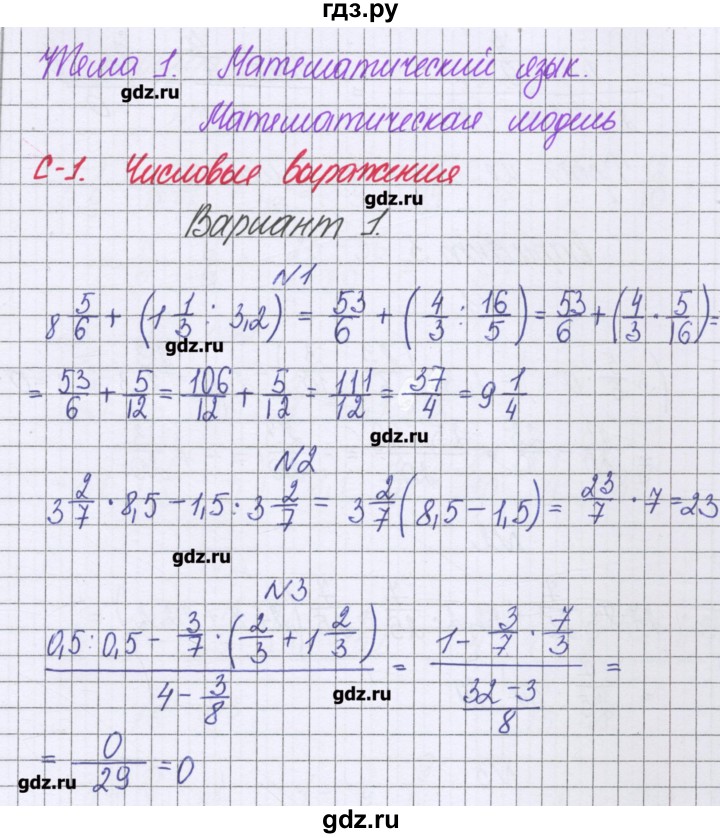 гдз.ру
Тема 1. Математический язык.
gdz.ru
Математическая модель
С-1. Числовые выражения
gdz.ru
Вариант 1.
№1
8 5/6 + (1 1/3 : 3,2) = 53/6 + (4/3 : 16/5) = 53/6 + (4/3 · 5/16) =
gdz.ru
= 53/6 + 5/12 = 106/12 + 5/12 = 111/12 = 37/4 = 9 1/4
gdz.ru
№2
3 2/7 · 8,5 - 1,5 : 3 2/7 = 3 2/7 (8,5 - 1,5) = 23/7 · 7 = 23
gdz.ru
№3
(0,5 : 0,5 - 3/7 · (2/3 + 1 2/3)) / (4 - 3/8) = (1 - 3/7 · 7/3) / ((32 - 3)/8) =
gdz.ru
= 0/29 = 0
gdz.ru
gdz.ru